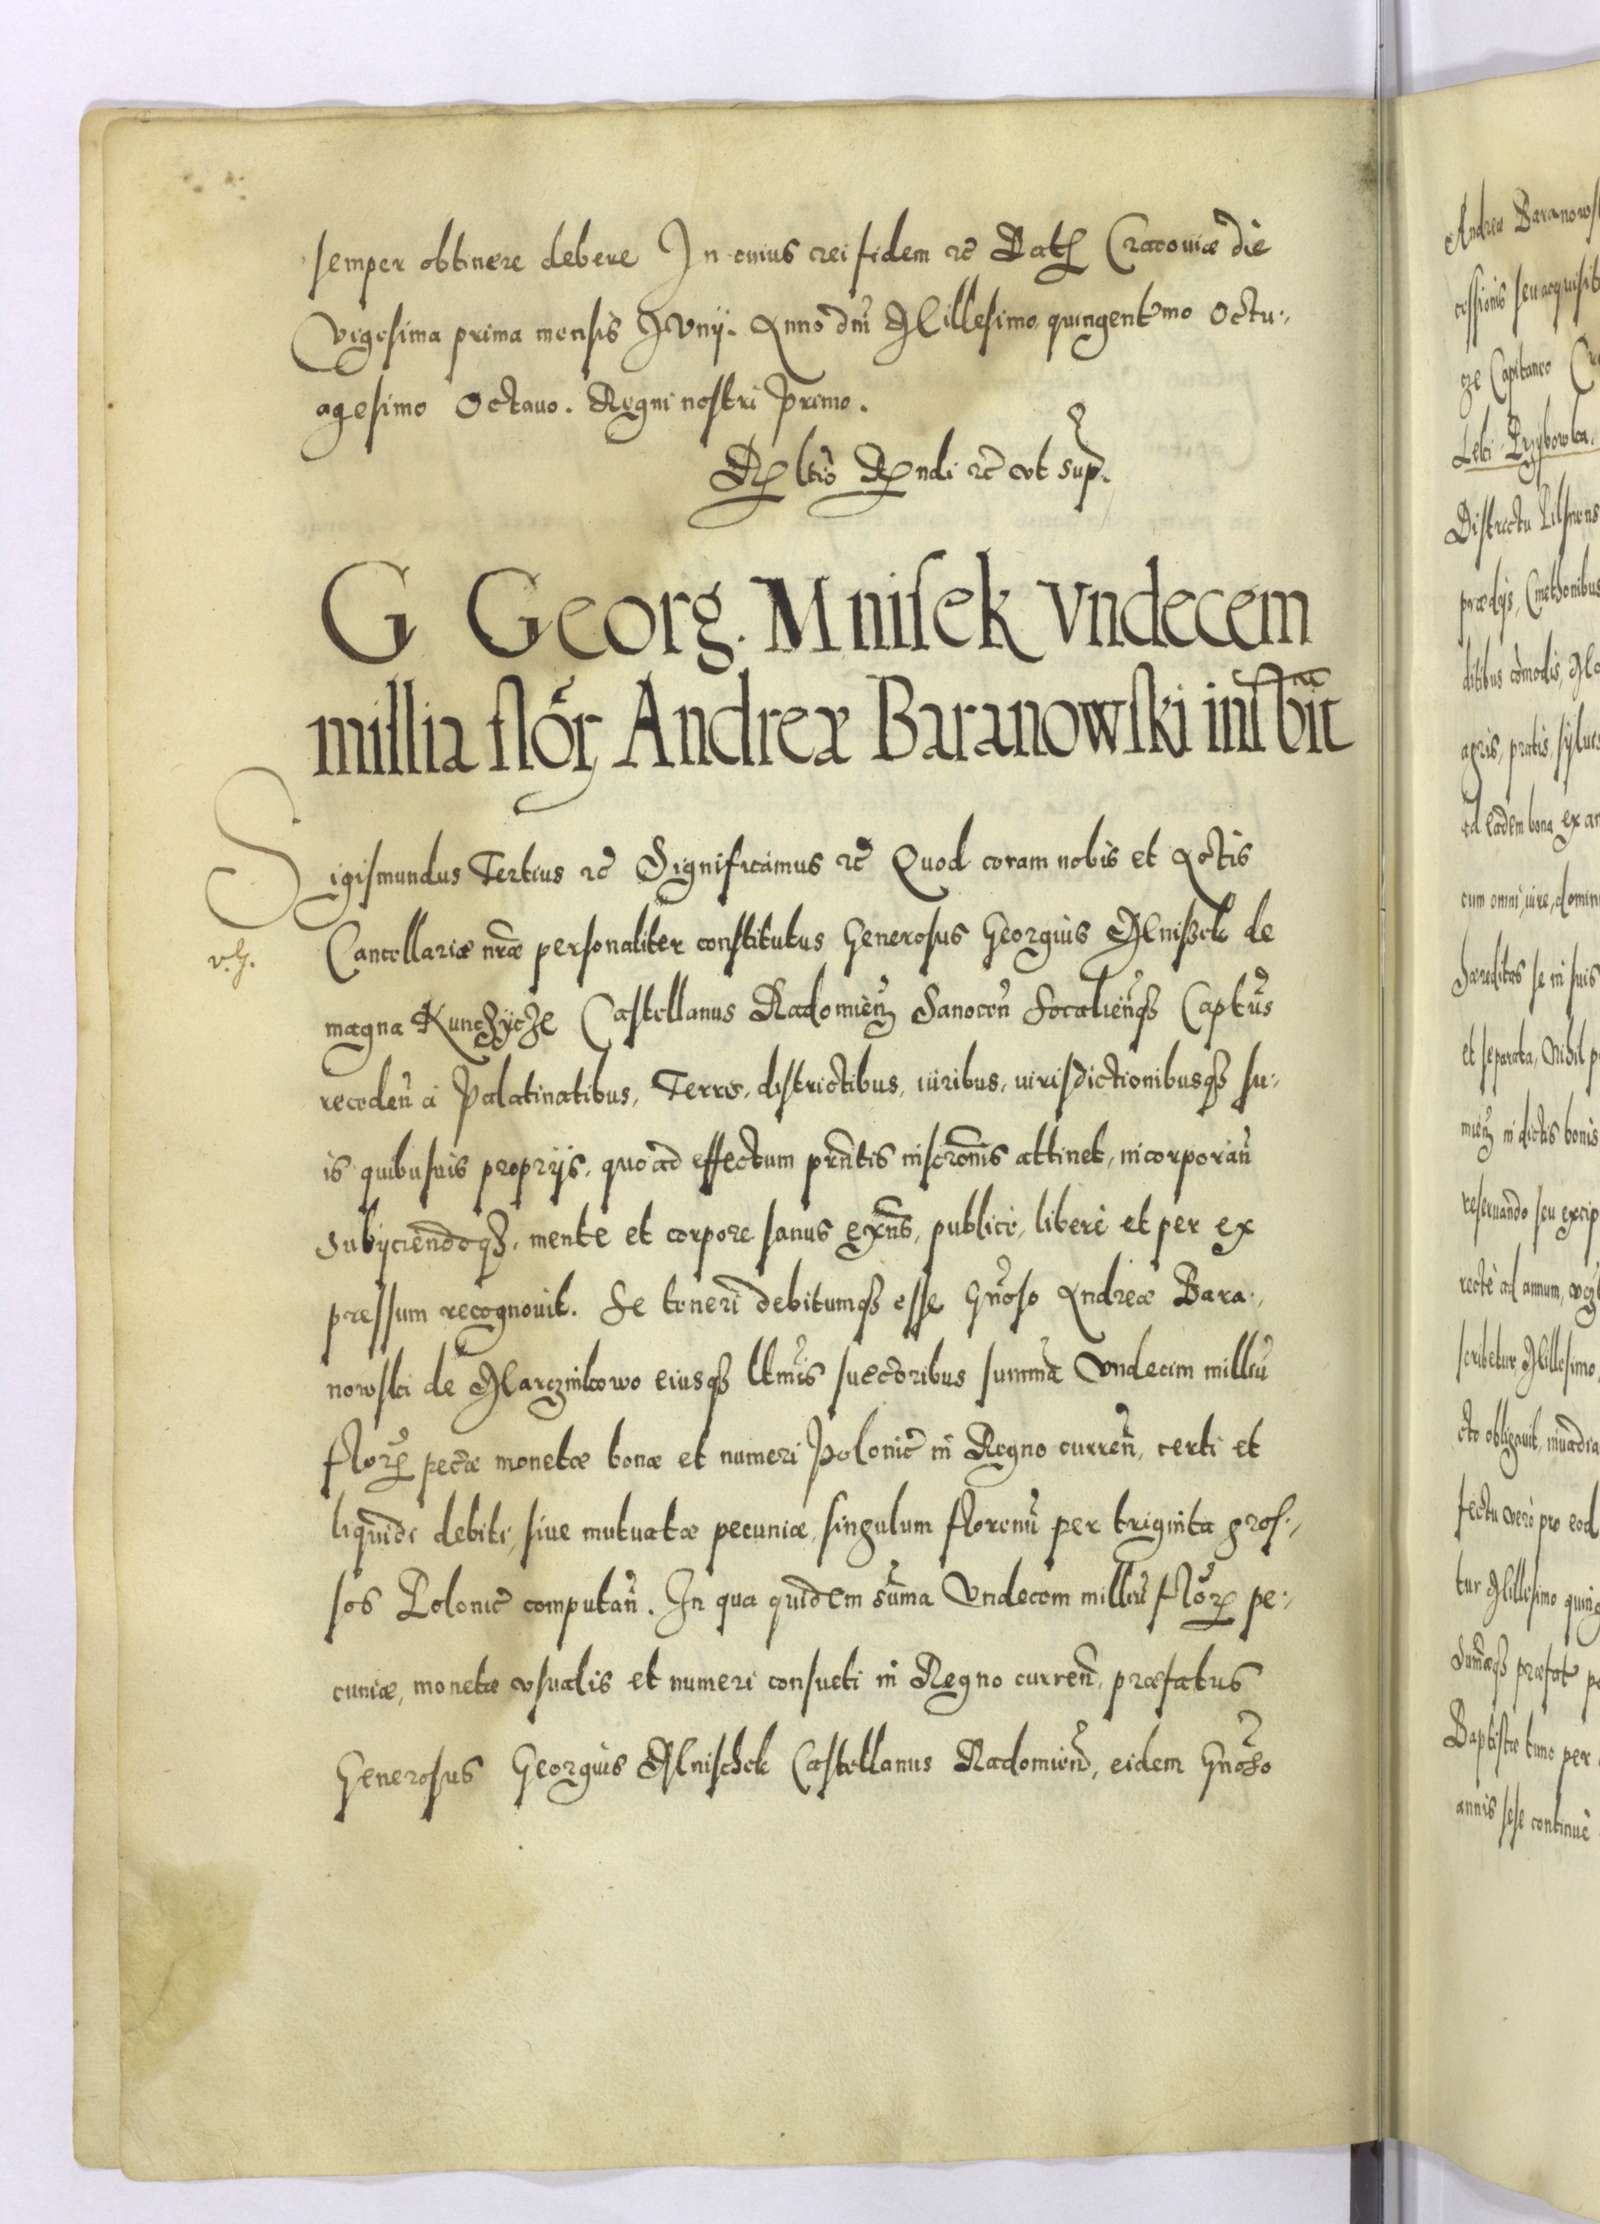 semper obtinere debere In cuius rei fidem etc̃ Datꝭ Cracouiæ die
Vigesima prima mensis Iunij. Anno dnĩ Millesimo quingentmo Octu-
agesimo Octauo. Regni nostri Primo.
Rꝫ ltĩo Rꝫndi etc̃ vt sup.
G Georg. Mnisek Vndecem
millia flor Andreæ Baranowski inscribit
Sigismundus Tertius etc̃ Significamus etc̃ Quod coram nobis et Actis
Cancellariæ nr̃æ personaliter constitutus Generosus Georgius Mnisek de
magna Kunczÿcze Castellanus Radomieñ Sanoceñ Socalieñqꝫ Captũs
recedeñ à Palatinatibus, Terris, districtibus, iuribus, iurisdictionibusqꝫ su-
is quibusuis proprijs, quoad effectum prñtis inscrõnis attinet, incorporañ
subijciendoqꝫ, mente et corpore sanus exñs, publicè, liberè et per ex
pressum recognouit. Se teneri debitumqꝫ esse Gñoso Andreæ Bara-
nowski de Marczinkowo eiusqꝫ ltmis succõribus summã Vndecim milliũ
florꝫ pecĩæ monetæ bonæ et numeri Polonic̃ in Regno curreñ, certi et
liquidi debiti, siue mutuatæ pecuniæ, singulum florenũ per triginta gros-
sos Polonic̃ computañ. In qua quidem sũma Vndecem milliũ florꝫ pe-
cuniæ, monetæ vsualis et numeri consueti in Regno curreñ, præfatus
Generosus Georgius Mnischek Castellanus Radomieñ, eidem Gñoso
Andreæ
cessionis seu acquisit
ze Capitaneo
Districtu Pilsnens
prædijs, Cmethonibus
agris, pratis, syluis
ea eadem bona ex
cum omni iure, domin
hæreditas se in suis
et separata, Nihil
in dictis bonis
reseruando seu excip
rectè ad annum,
scribetur Millesimo
obligauit,
fectu vero pro eod
tur Millesimo
præfat
Baptistæ tunc per
annis sese continuè